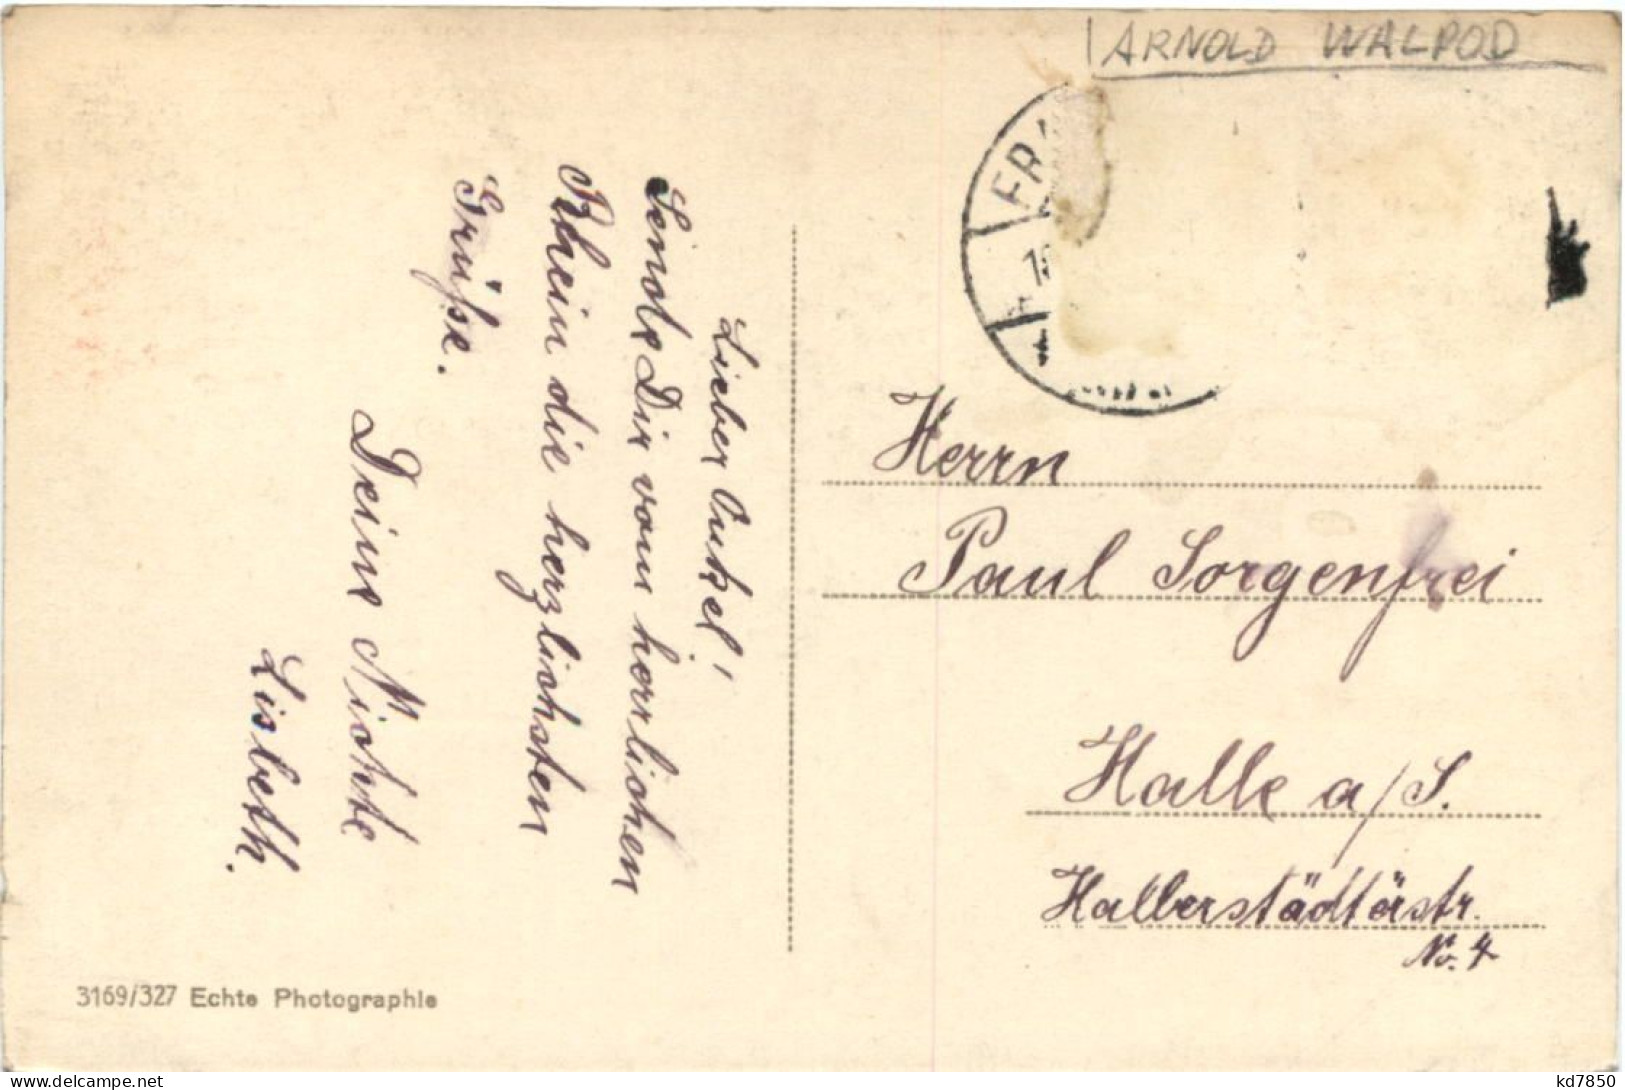 ARNOLD WALPOD
Lieber Onkel!
Sende Dir vom herrlichen
Rhein die herzlichsten
Grüße.
Deine Nichte
Lisbeth.
FRA
Herrn
Paul Sorgenfrei
Halle a/S.
Halberstädterstr.
No. 4
3169/327 Echte Photographie
kd7850